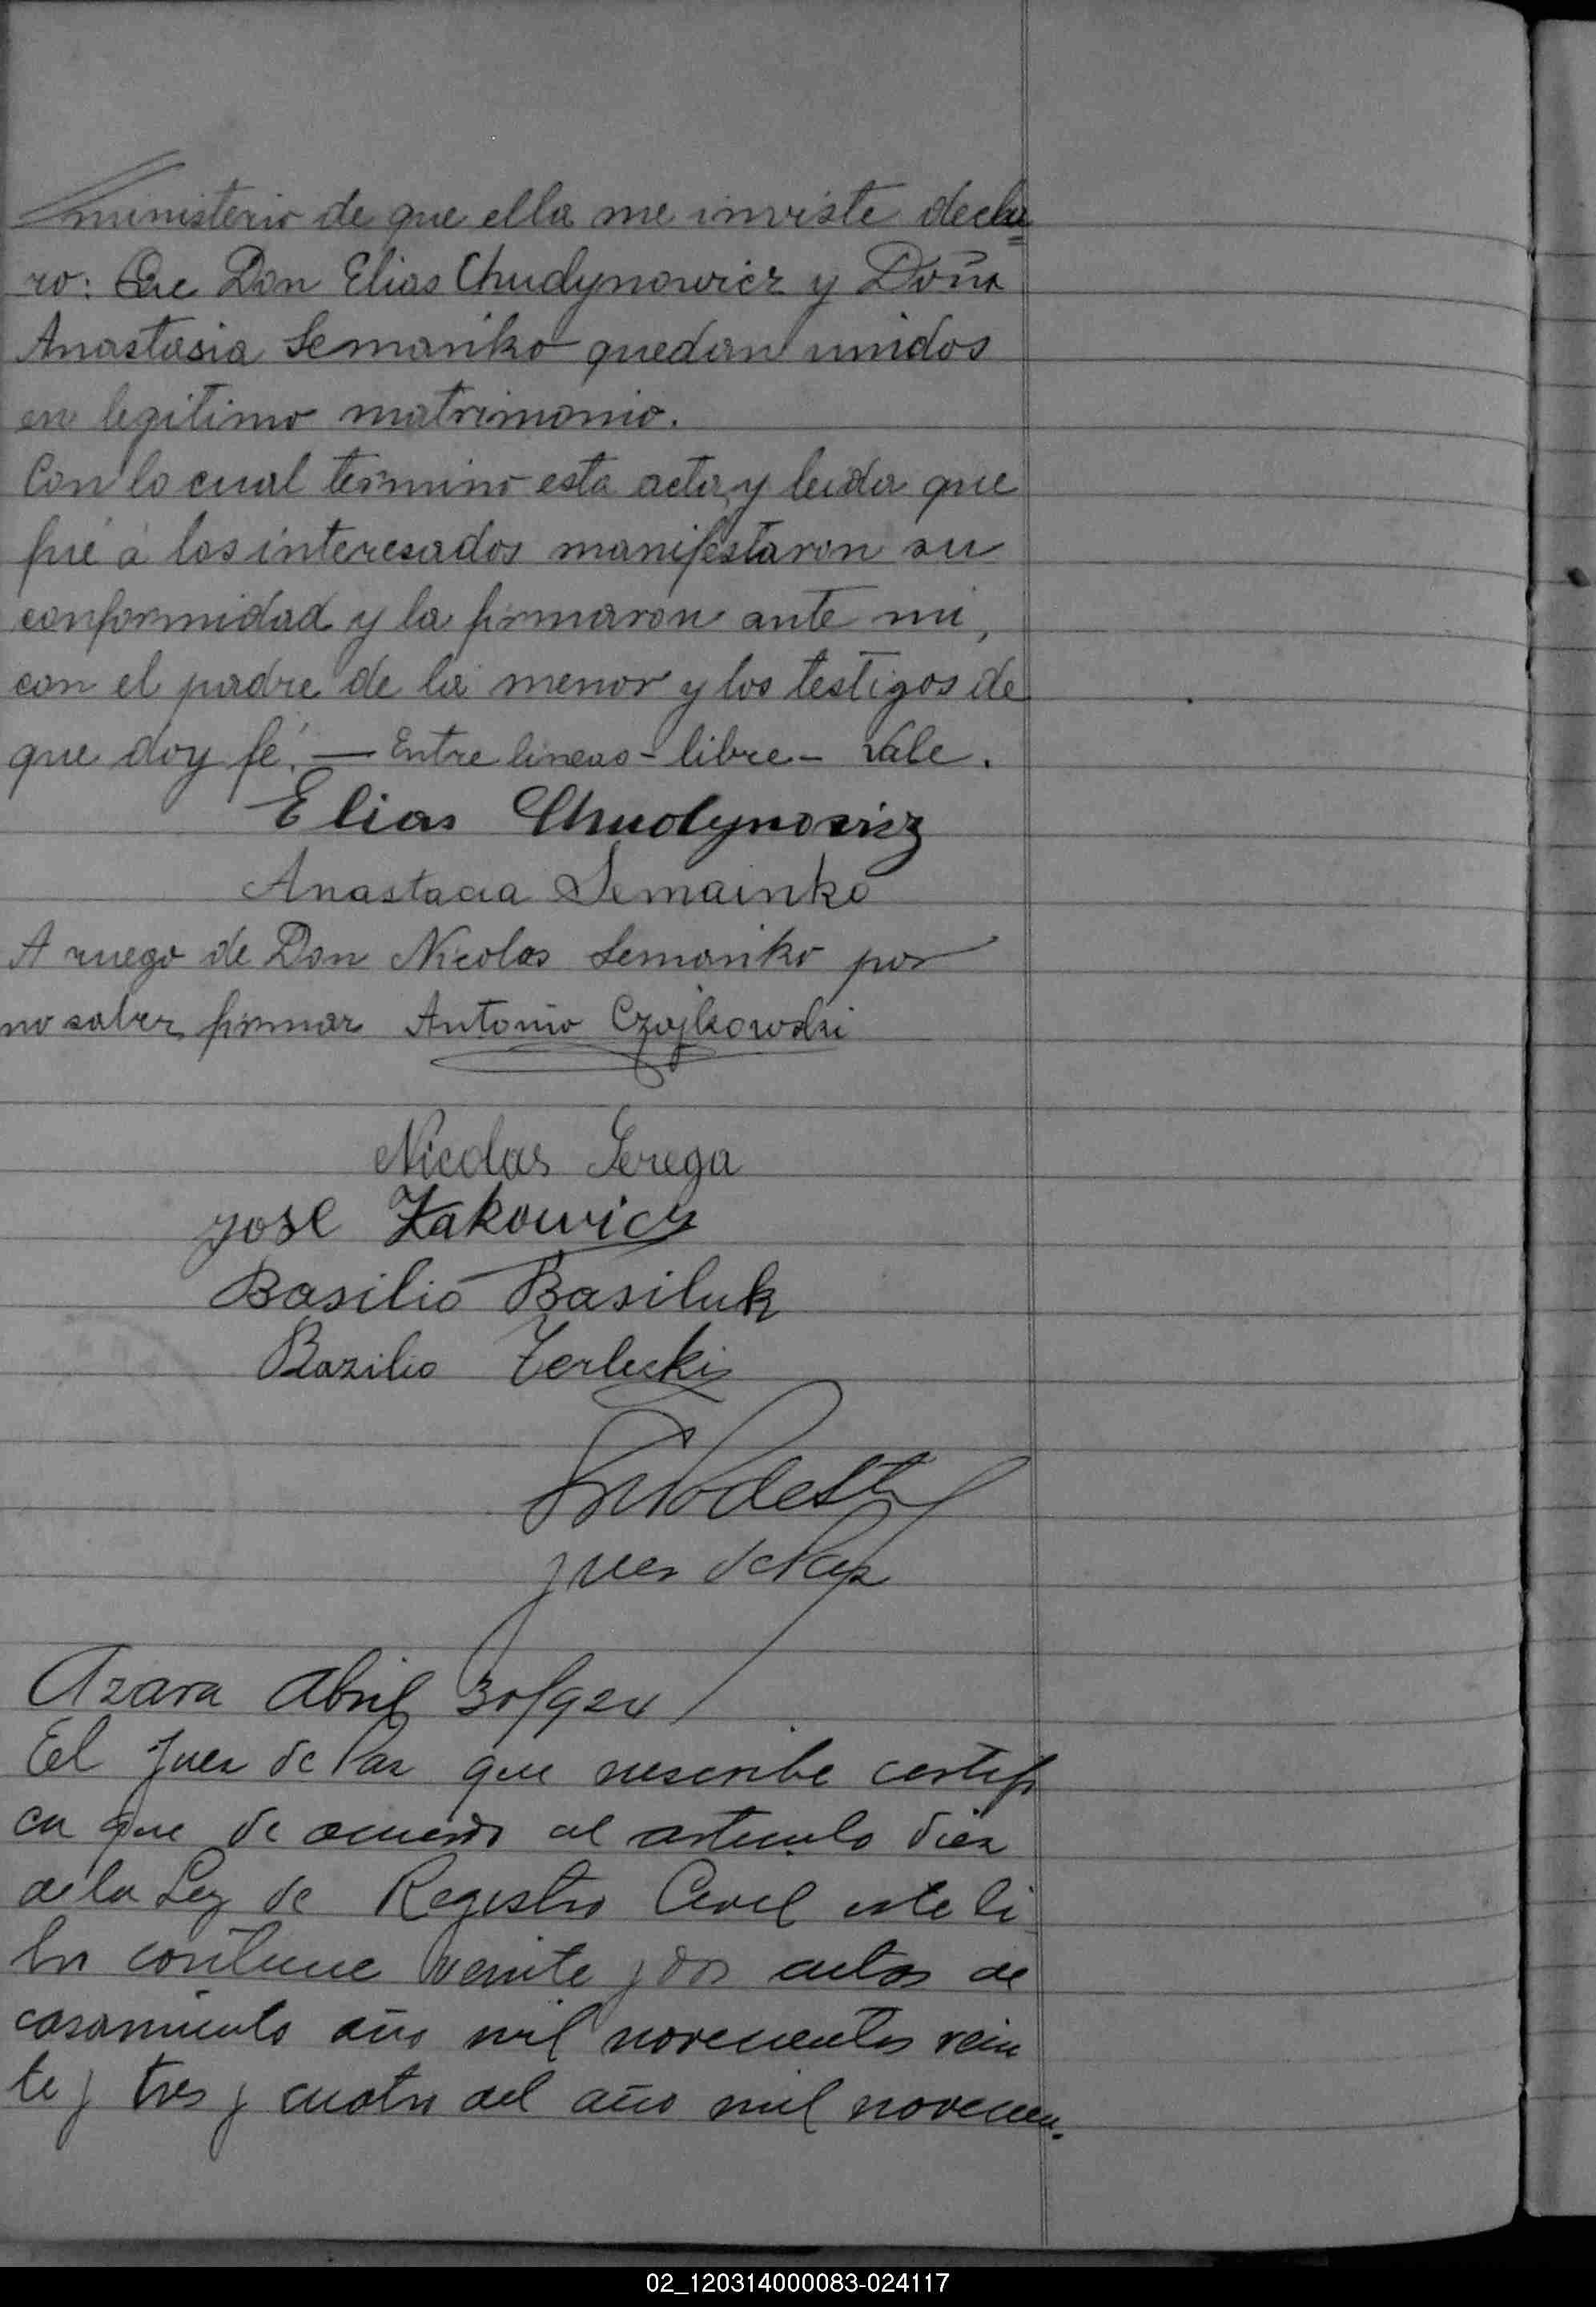 ministerio de que ella me inviste decla=
ro: Que Don Elias Chudynowicz y Doña
Anastasia Semaniko quedan unidos
en legitimo matrimonio.
Con lo cual termino esta acta, y leida que
fué á los interesados manifestaron su
conformidad y la firmaron ante mi,
con el padre de la menor y los testigos de
que doy fé. — Entre lineas - libre - Vale.
Elias Chudynowicz
Anastacia Semainko
A ruego de Don Nicolas Semaniko por
no saber firmar Antonio Czajkowski
Nicolas Serega
Jose Zakowicz
Basilio Basiluk
Bazilio Terlecki
Juez de Paz
Azara Abril 30/924
El Juez de Paz que suscribe certifi
ca que de acuerdo al articulo diez
de la Ley de Registro Civil este li
bro contiene veinte y dos actas de
casamiento año mil novecientos vein
te y tres y cuatro del año mil novecien-
02_120314000083-024117